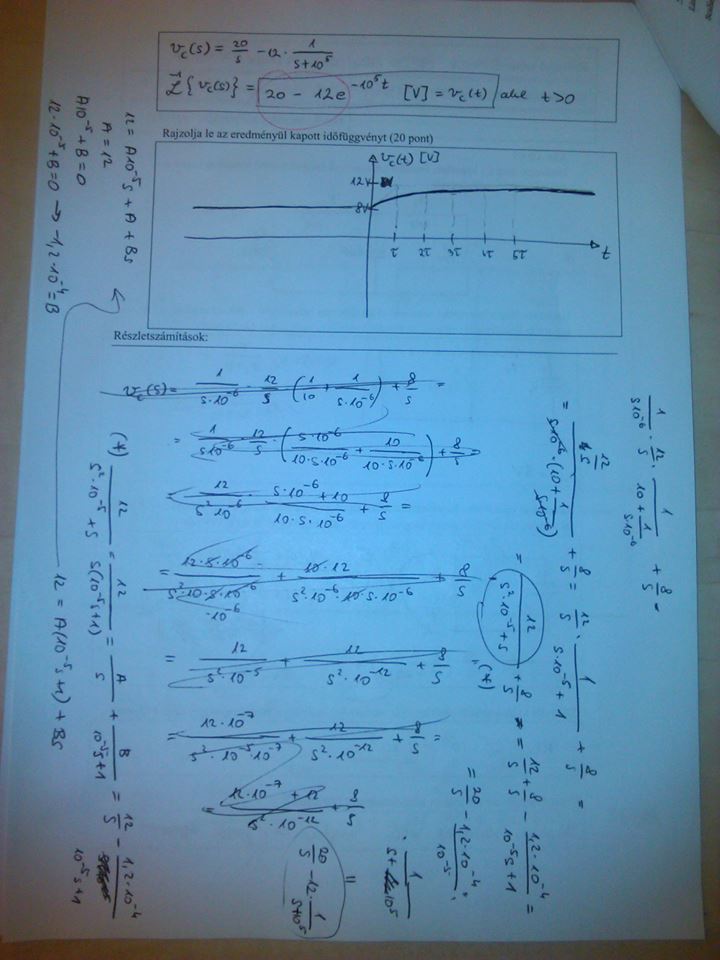 v_c(s) = 20/s - 12 · 1/(s+10^5)
ℒ^-1{v_c(s)} = 20 - 12e^(-10^5 t) [V] = v_c(t) ahol t>0
Rajzolja le az eredményül kapott időfüggvényt (20 pont)
v_c(t) [V]
12V
8V
τ 2τ 3τ 4τ 5τ
t
Részletszámítások:
v_c(s) = 1/(s·10^-6) · 12/s · (1/10 + 1/(s·10^-6)) + 8/s =
= 1/(s10^-6) · 12/s · (s·10^-6/(10·s·10^-6) + 10/(10·s·10^-6)) + 8/s =
= 12/(s²10^-6) · (s·10^-6+10)/(10·s·10^-6) + 8/s =
= 12·s·10^-6/(s²·10·s·10^-6·10^-6) + 10·12/(s²·10^-6·10·s·10^-6) + 8/s
= 12/(s²·10^-5) + 12/(s²·10^-12) + 8/s
= 12·10^-7/(s²·10^-5·10^-7) + 12/(s²·10^-12) + 8/s =
= (12·10^-7+12)/(s²·10^-12) + 8/s
1/(s10^-6) · 12/s · 1/(10 + 1/(s10^-6)) + 8/s =
= 12/s/(s·10^-6·(10 + 1/(s·10^-6))) + 8/s = 12/s · 1/(s·10^-5+1) + 8/s =
= 12/(s²·10^-5+s) + 8/s = (*) = 12/s + 8/s - 1,2·10^-4/(10^-5s+1) =
= 20/s - 1,2·10^-4/10^-5 · 1/(s+10^5)
= 20/s - 12 · 1/(s+10^5)
(*) 12/(s²·10^-5+s) = 12/(s(10^-5s+1)) = A/s + B/(10^-5s+1) = 12/s - 1,2·10^-4/(10^-5s+1)
12 = A(10^-5s+1) + Bs
12 = A10^-5s + A + Bs
A = 12
A10^-5 + B = 0
12·10^-5 + B = 0 → -1,2·10^-4 = B